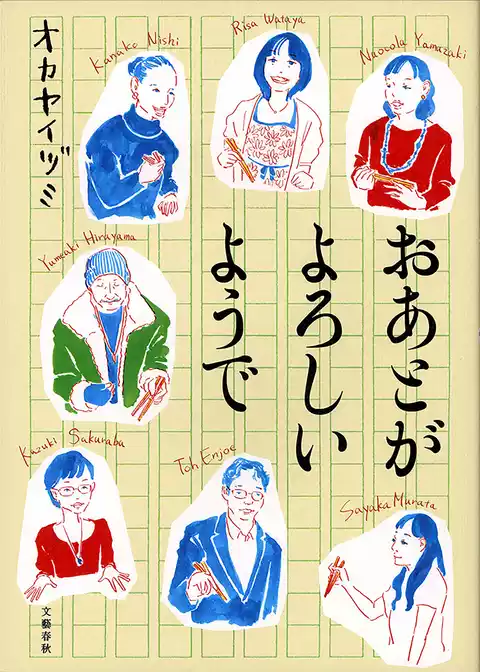 オカヤイヅミ
Kanako Nishi
Risa Wataya
Naocola Yamazaki
おあとが
よろしい
ようで
Yumeaki Hirayama
Kazuki Sakuraba
Toh Enjoe
Sayaka Murata
文藝春秋